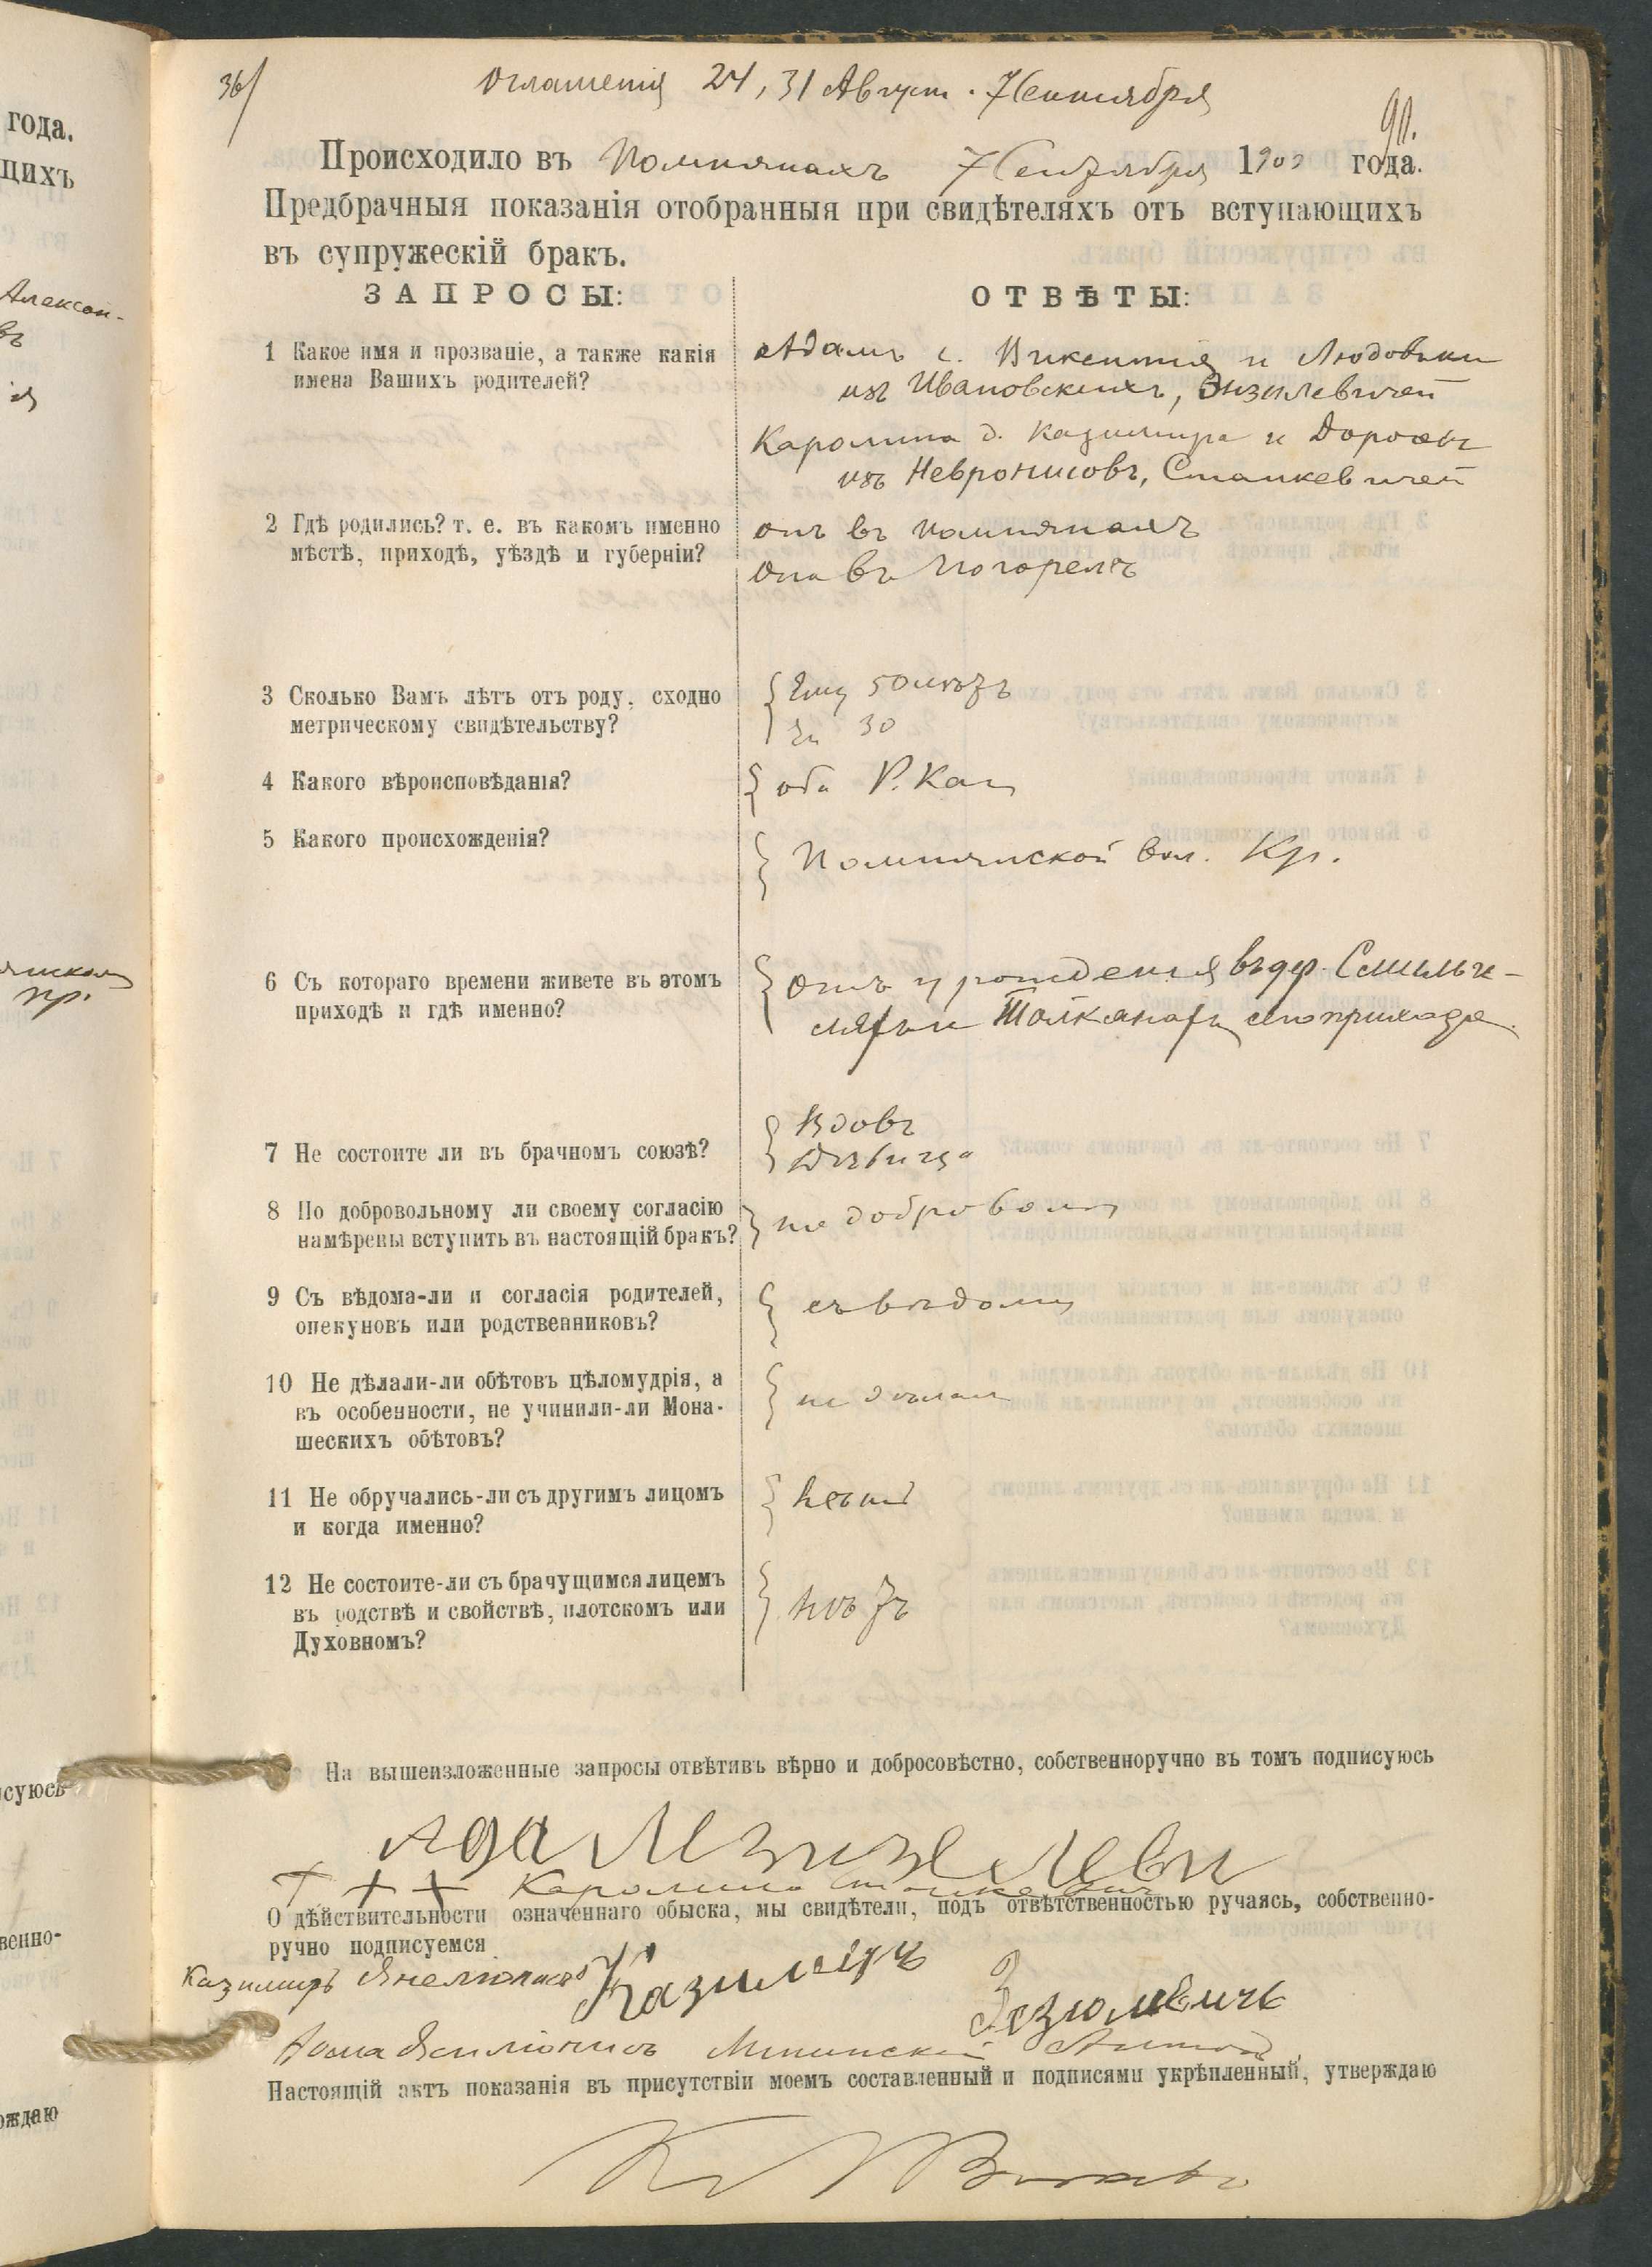 года.
щихъ
Алексан-
въ
пр.
суюсь
венно-
ождаю
36/ Оглашенія 24, 31 Август. 7 Сентября
90.
Происходило въ Помпянахъ 7 Сентября 190 года.
Предбрачныя показанія отобранныя при свидѣтеляхъ отъ вступающихъ
въ супружескій бракъ.
ЗАПРОСЫ: ОТВѢТЫ:
1 Какое имя и прозваніе, а также какія
имена Вашихъ родителей?
Адамъ с. Викентія и Людовики
изъ Ивановскихъ, Визилевичей
Каролина д. Казимира и Доротеи
изъ Невронисовъ, Станкевичей
2 Гдѣ родились? т. е. въ какомъ именно
мѣстѣ, приходѣ, уѣздѣ и губерніи?
онъ въ Помпянахъ
Она въ Погорелѣ
3 Сколько Вамъ лѣтъ отъ роду, сходно
метрическому свидѣтельству?
Ему 50 лѣтъ
Ей 30
4 Какого вѣроисповѣданія?
оба Р. Кат
5 Какого происхожденія?
Помпянской вол. Кр.
6 Съ котораго времени живете въ этомъ
приходѣ и гдѣ именно?
Отъ урожденія въ дер. Смильги-
сего прихода.
7 Не состоите ли въ брачномъ союзѣ?
Вдовъ
Дѣвица
8 По добровольному ли своему согласію
намѣрены вступить въ настоящій бракъ?
по доброволи
9 Съ вѣдома-ли и согласія родителей,
опекуновъ или родственниковъ?
съ вѣдома
10 Не дѣлали-ли обѣтовъ цѣломудрія, а
въ особенности, не учинили-ли Мона-
шескихъ обѣтовъ?
не дѣлали
11 Не обручались-ли съ другимъ лицомъ
и когда именно?
12 Не состоите-ли съ брачущимся лицемъ
въ родствѣ и свойствѣ, плотскомъ или
Духовномъ?
нѣтъ
На вышеизложенные запросы отвѣтивъ вѣрно и добросовѣстно, собственноручно въ томъ подписуюсь
Адам Езизелеви
+ + + Каролина Станкевич
О дѣйствительности означеннаго обыска, мы свидѣтели, подъ отвѣтственностью ручаясь, собственно-
ручно подписуемся
Казимиръ Казимiръ Зезюлевичъ
Антон
Настоящій актъ показанія въ присутствіи моемъ составленный и подписями укрѣпленный, утверждаю